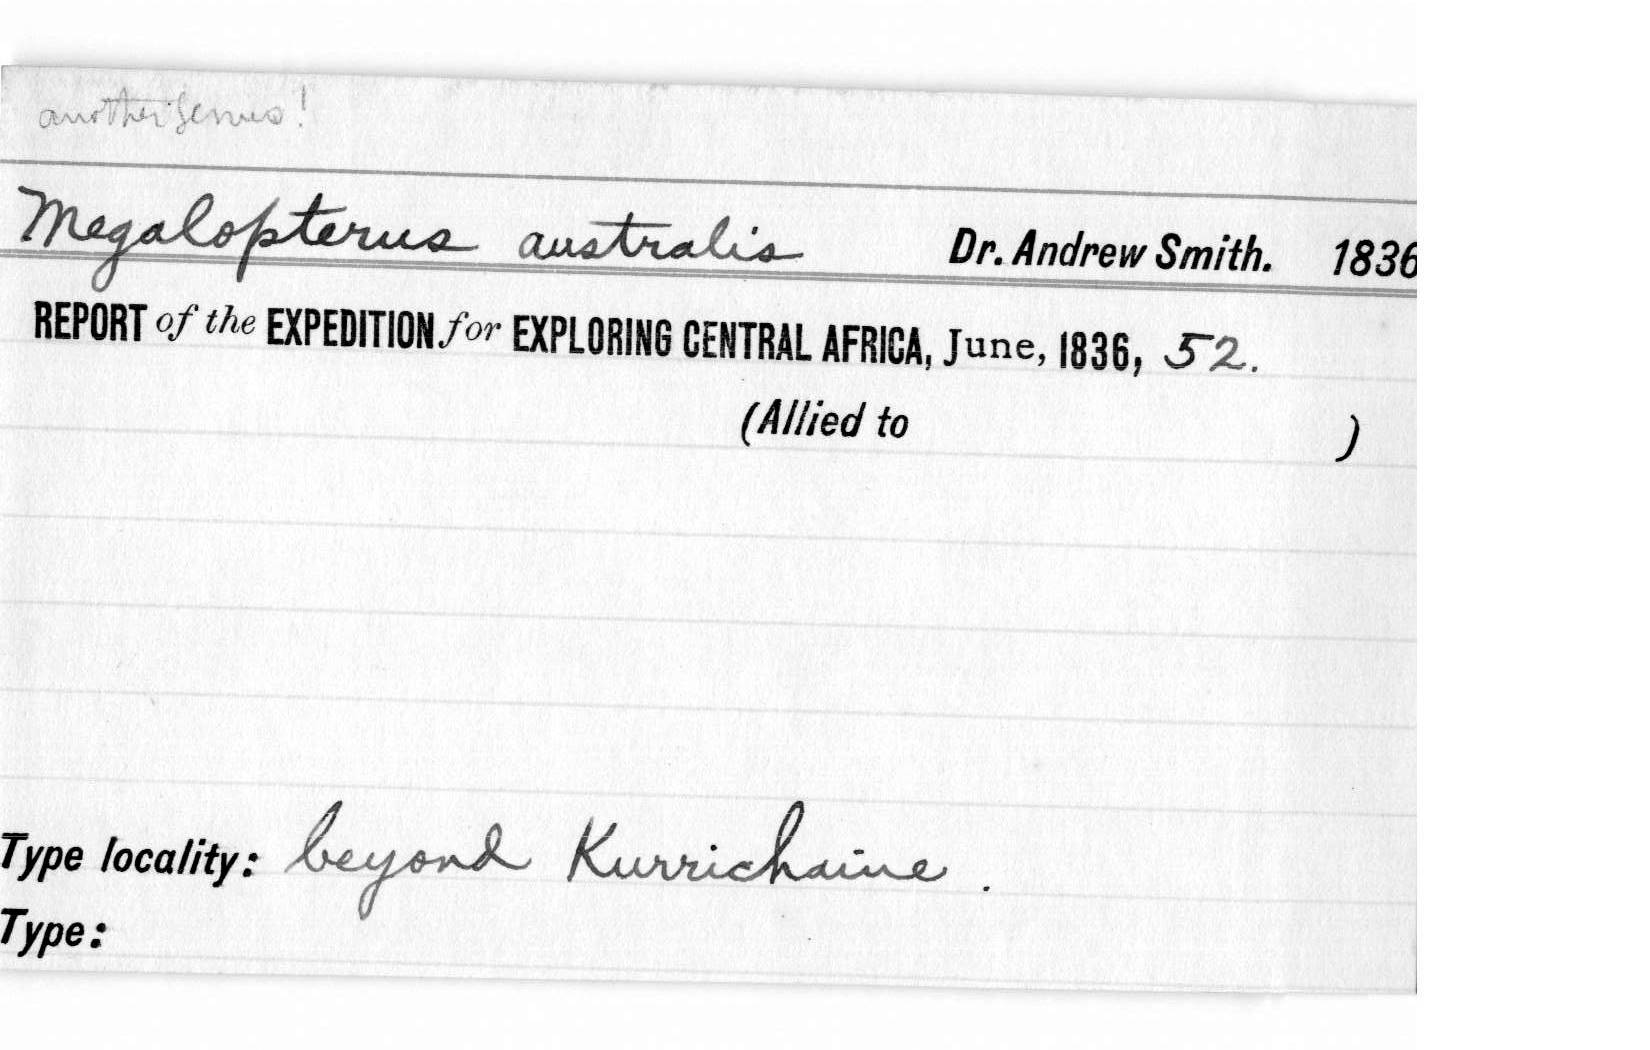 another genus!
Megalopterus australis Dr. Andrew Smith. 1836
REPORT of the EXPEDITION for EXPLORING CENTRAL AFRICA, June, 1836, 52.
(Allied to )
Type locality: beyond Kurrichaine.
Type: